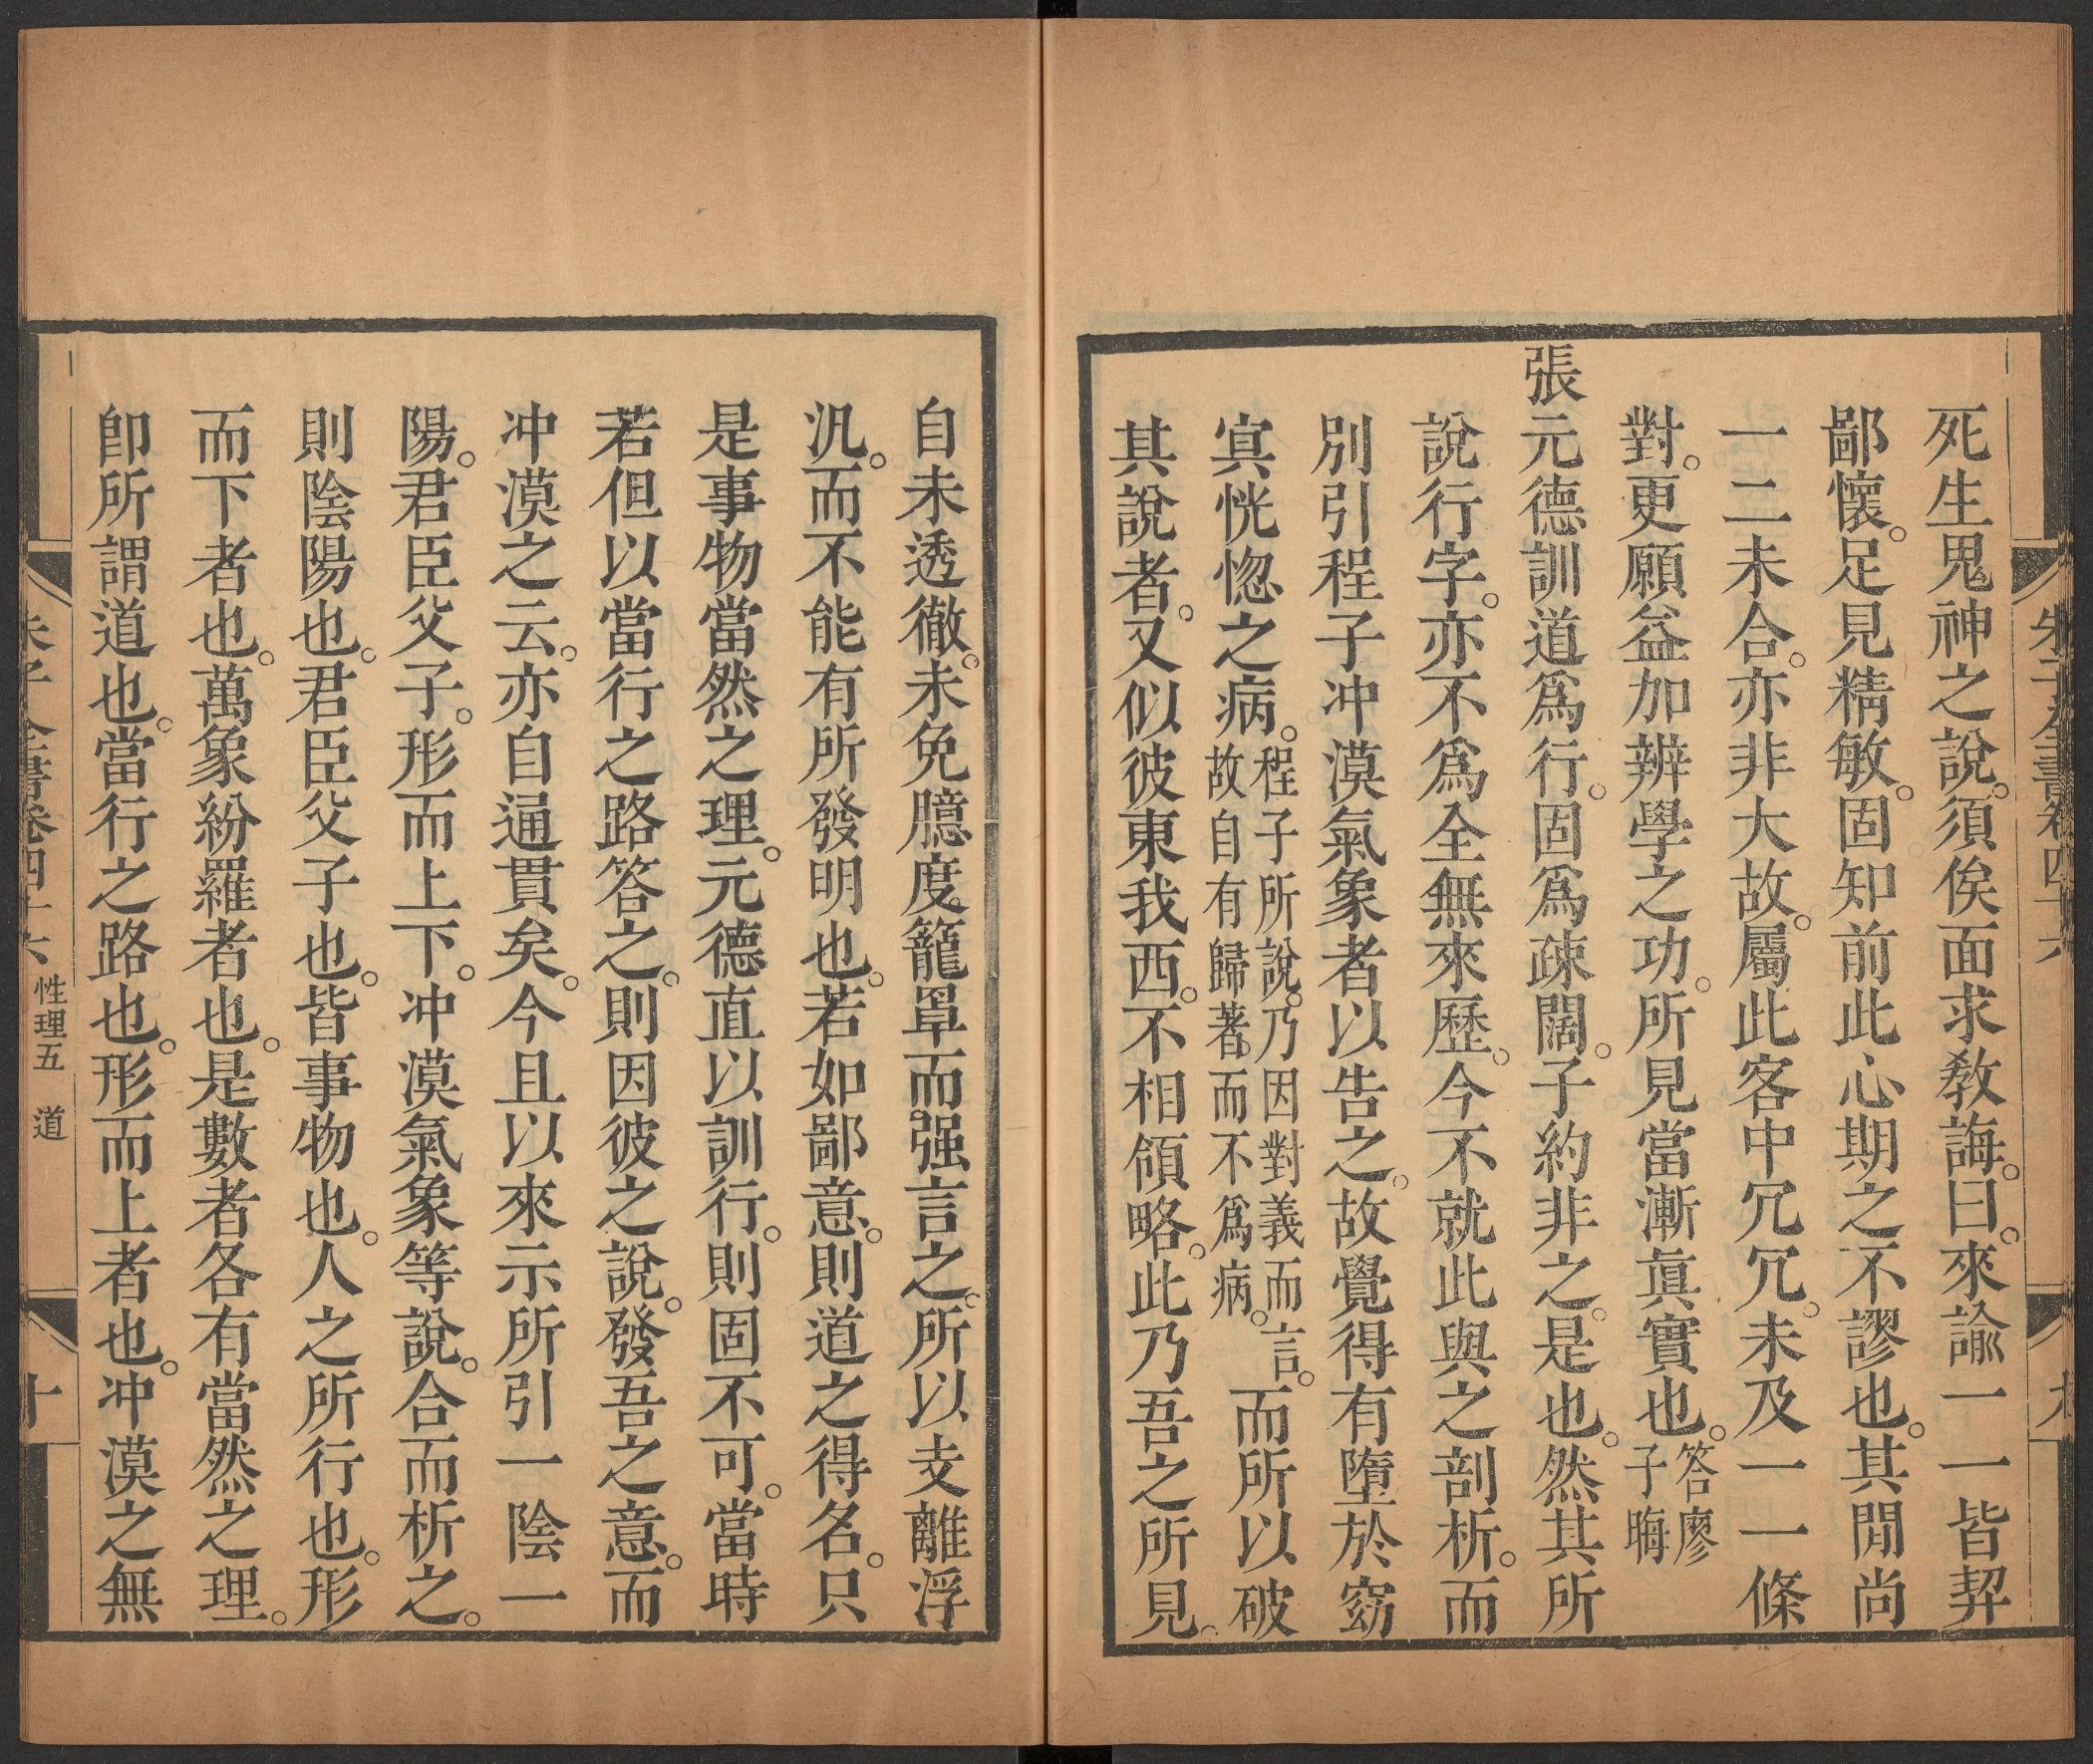 死生鬼神之說。須俟面求教誨。曰。來諭一一皆契
鄙懷。足見精敏。固知前此心期之不謬也。其閒尚
一二未合。亦非大故。屬此客中冗冗。未及一一條
對。更願益加辨學之功。所見當漸眞實也。答廖子晦
張元德訓道爲行。固爲疎闊。子約非之。是也。然其所
說行字。亦不爲全無來歷。今不就此與之剖析。而
別引程子冲漠氣象者以告之。故覺得有墮於窈
寘恍惚之病。程子所說。乃因對義而言。故自有歸著。而不爲病。而所以破
其說者。又似彼東我西。不相領略。此乃吾之所見。
自未透徹。未免臆度。籠罩而强言之。所以支離浮
汎。而不能有所發明也。若如鄙意。則道之得名。只
是事物當然之理。元德直以訓行。則固不可。當時
若但以當行之路答之。則因彼之說。發吾之意。而
冲漠之云。亦自通貫矣。今且以來示所引一陰一
陽。君臣父子。形而上下。冲漠氣象等說。合而析之。
則陰陽也。君臣父子也。皆事物也。人之所行也。形
而下者也。萬象紛羅者也。是數者各有當然之理。
卽所謂道也。當行之路也。形而上者也。冲漠之無
朱子全書卷四十六 性理五 道 十